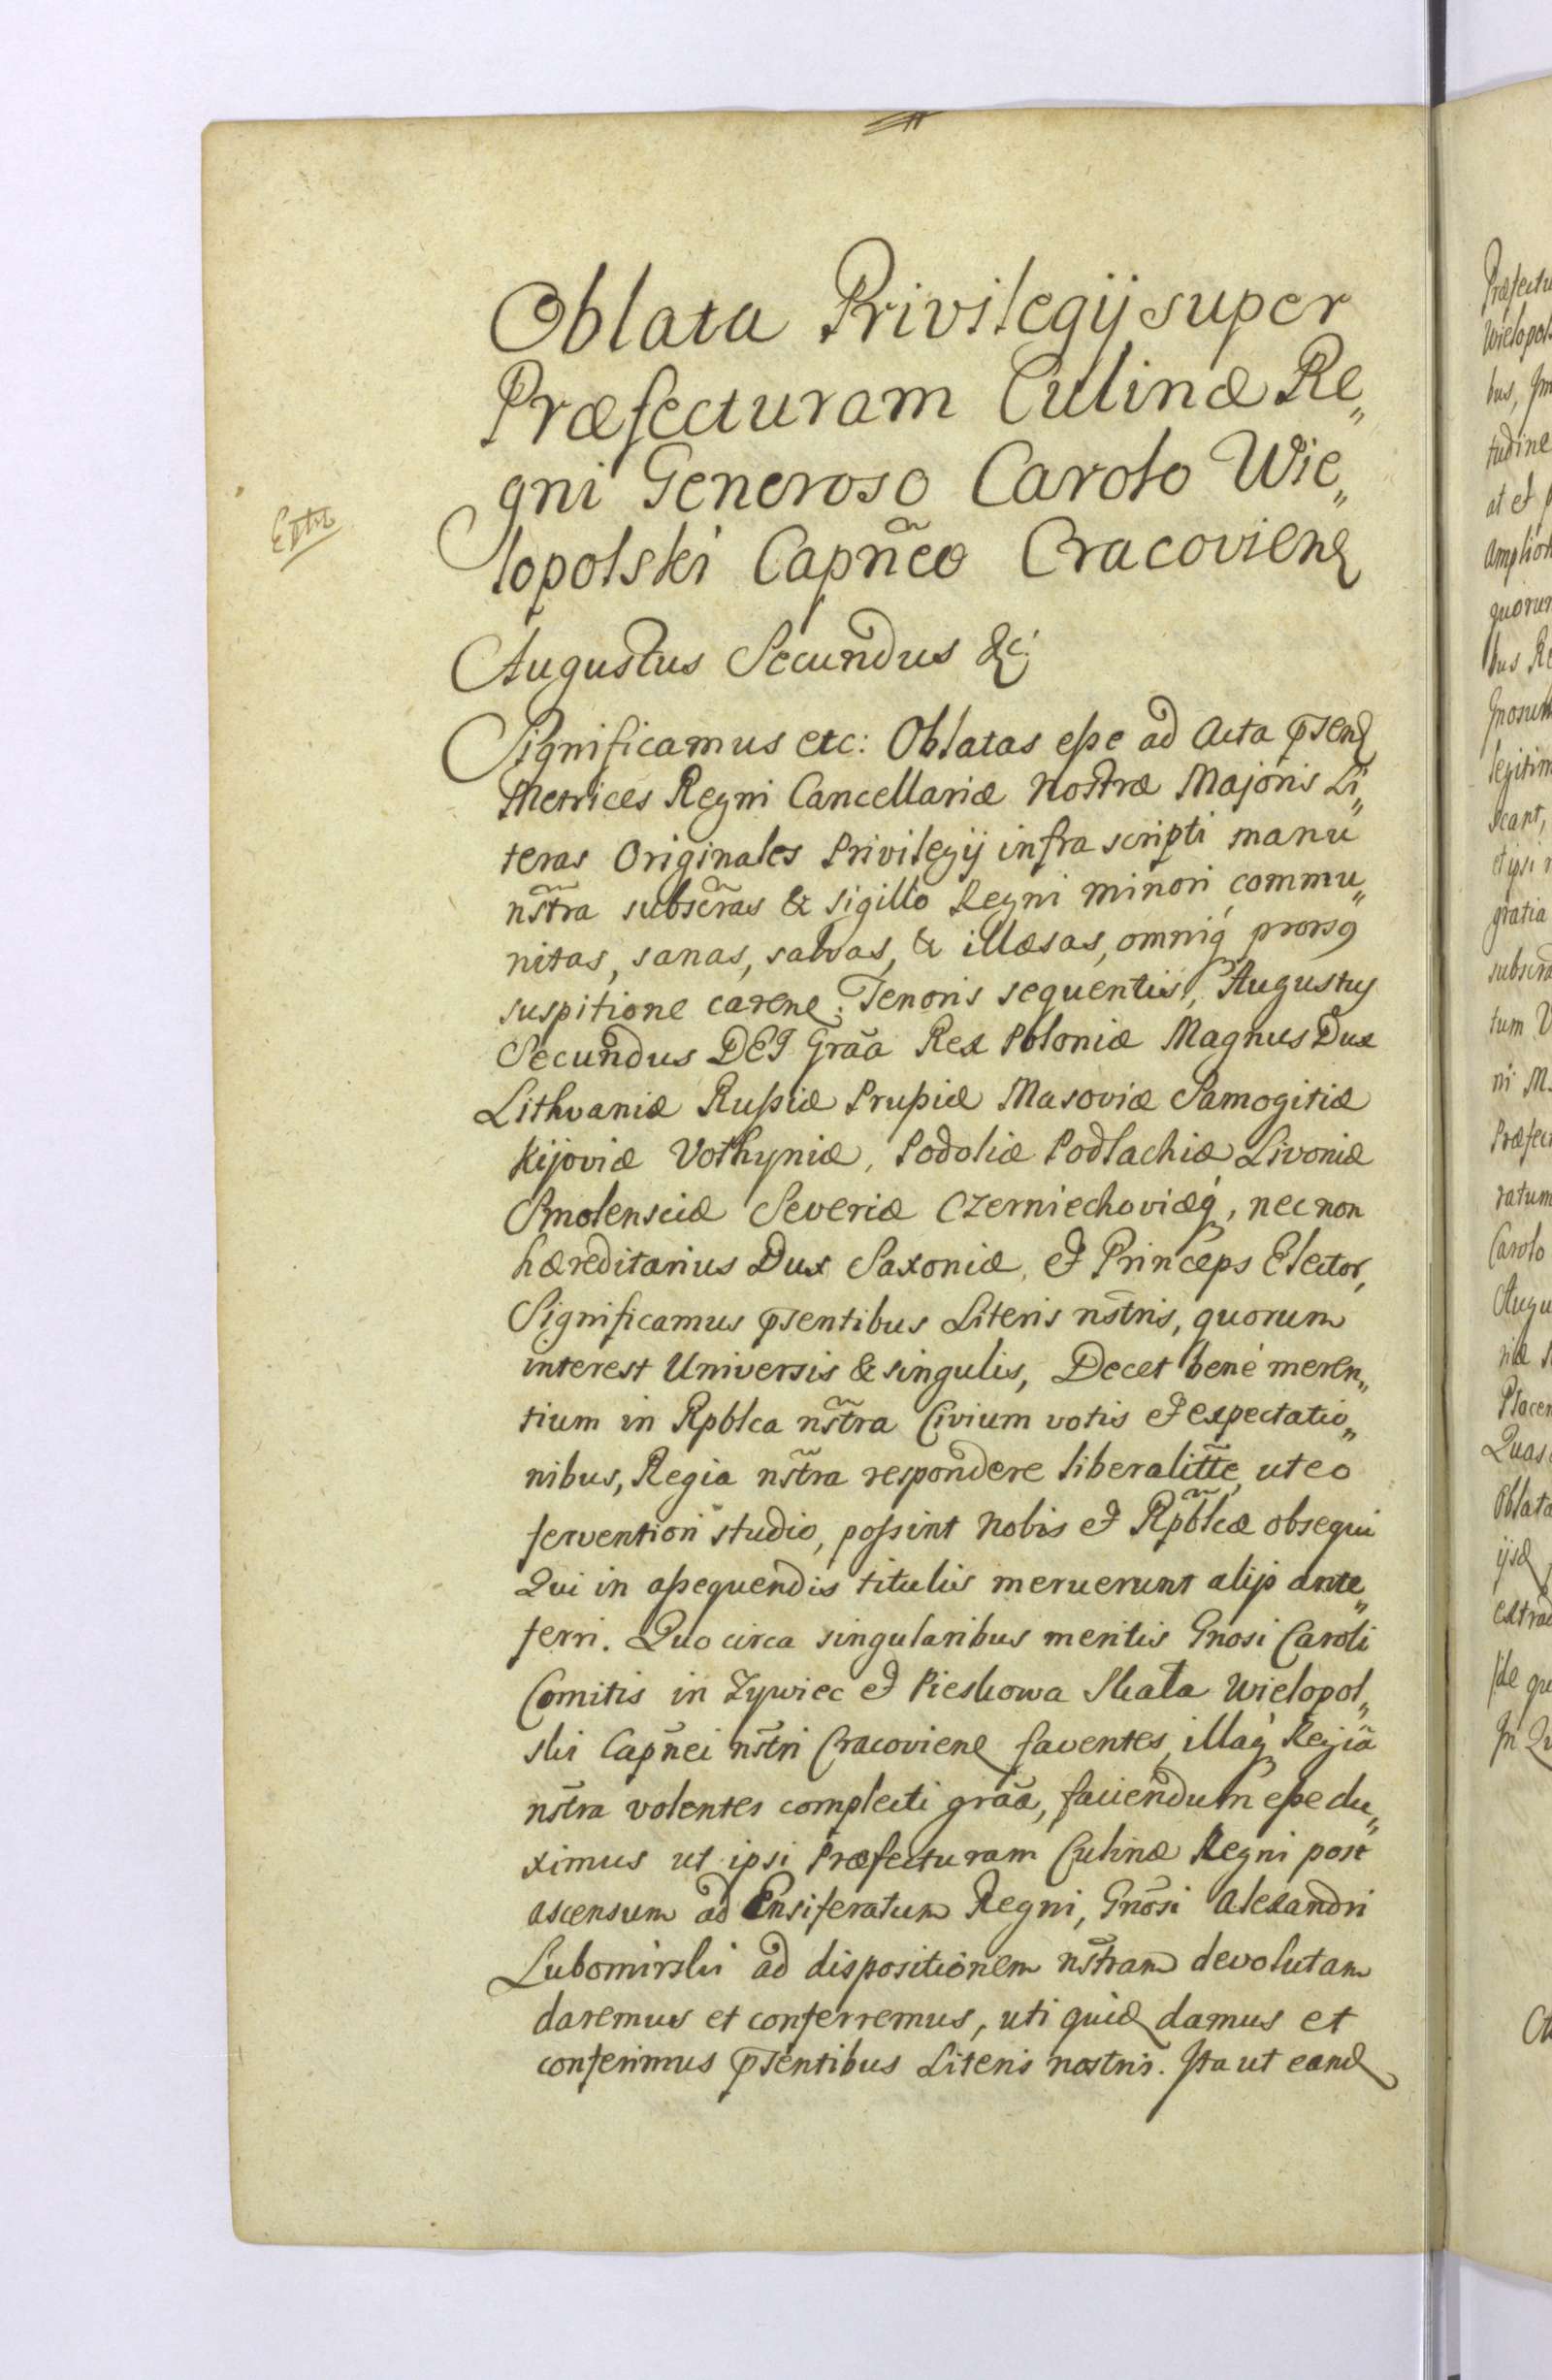 Oblata Privilegij super
Præfecturam Culinæ Re„
gni Generoso Carolo Wie„
lopolski Capñeo Cracovien
Augustus Secundus &c:
Significamus etc: Oblatas eße ad Acta p̃sen
Metrices Regni Cancellariæ Nostræ Majoris Li„
teras Originales Privilegij infra scripti manu
nr̃a subscr̃as & Sigillo Regni minori commu„
nitas, sanas, salvas, & illæsas, omniq́ prorsꝰ
suspitione caren: Tenoris sequentis, Augustus
Secundus DEI Grãa Rex Poloniæ Magnus Dux
Lithvaniæ Rußiæ Prußiæ Masoviæ Samogitiæ
Kijoviæ Volhyniæ, Podoliæ Podlachiæ Livoniæ
Smolensciæ Severiæ Czerniechoviæq́, nec non
hæreditarius Dux Saxoniæ, et Princeps Elector,
Significamus p̃sentibus Literis ns̃tris, quorum
interest Universis & singulis, Decet benè meren„
tium in Rpblca ns̃tra Civium votis et expectatio„
nibus, Regia ns̃tra respondere liberalitt̃e, ut eo
ferventiori studio, poßint Nobis et Rpb̃lcæ obsequi
Qui in aßequendis titulis meruerunt alijs ante„
ferri. Quo circa singularibus meritis Gnosi Caroli
Comitis in Zywiec et Pieskowa Skała Wielopol„
ski Capñei ns̃tri Cracovien faventes, illáq́ Regiã
ns̃tra volentes complecti grãa, faciendum eße du„
ximus ut ipsi Præfecturam Culinæ Regni post
ascensum ad Ensiferatum Regni, Gnõsi Alexandri
Lubomirski ad dispositionem ns̃tram devolutam
daremus et conferremus, uti quid damus et
conferimus p̃sentibus Literis nostris. Ita ut eand